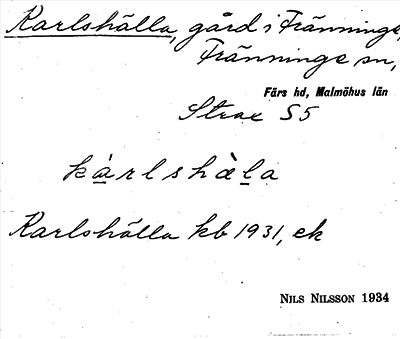 Karlshälla, gård i Tränninge,
Tränninge sn,
Färs hd, Malmöhus län
Strax S5
kàrlshàla
Karlshälla kb 1931, ek
NILS NILSSON 1934